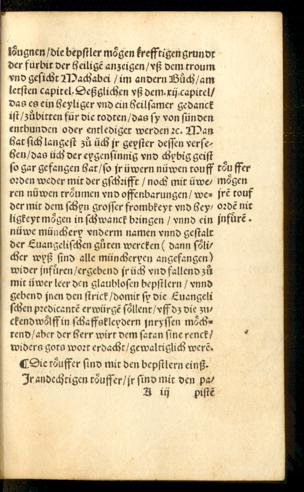 löugnen/die bepstler mögen krefftigen grundt
der fürbit der heiligē anzeigen/vß dem troum
vnd gesicht Machabei / im andern Bůch/am
letsten capitel. Deßglichen vß dem.xij.capitel/
das es ein heyliger vnd ein heilsamer gedanck
ist/zůbitten für die todten/das sy von sünden
entbunden oder entlediget werden ꝛc. Man
hat sich langest zů üch jr geyster dessen verse-
hen/das üch der eygensinnig vnd chybig geist
so gar gefangen hat/so jr üwern nüwen touff
orden weder mit der gschrifft / noch mit üwe-
ren nüwen tröumen vnd offenbarungen/ we-
der mit dem schyn grosser frombkeyt vnd hey-
ligkeyt mögen in schwanck bringen / vnnd ein
nüwe müncherey vnderm namen vnnd gestalt
der Euangelischen gůten wercken ( dann söli-
cher wyß sind alle müncheryen angefangen)
wider jnfüren/ergebend jr üch vnd fallend zů
mit üwer leer den glaublosen bepstlern / vnnd
gebend jnen den strick/domit sy die Euangeli
schen predicantē erwürgē söllent/vff dz die zu-
ckendwölff in schaffskleydern jnryssen möch-
tend/aber der herr wirt dem satan sine renck/
widers gots wort erdacht/gewaltiglich werē.
töuffer
mögen
jrē touf
ordē nit
jnfürē.
¶ Die töuffer sind mit den bepstlern einß.
Jr andechtigen töuffer/jr sind mit den pa-
A iij pistē